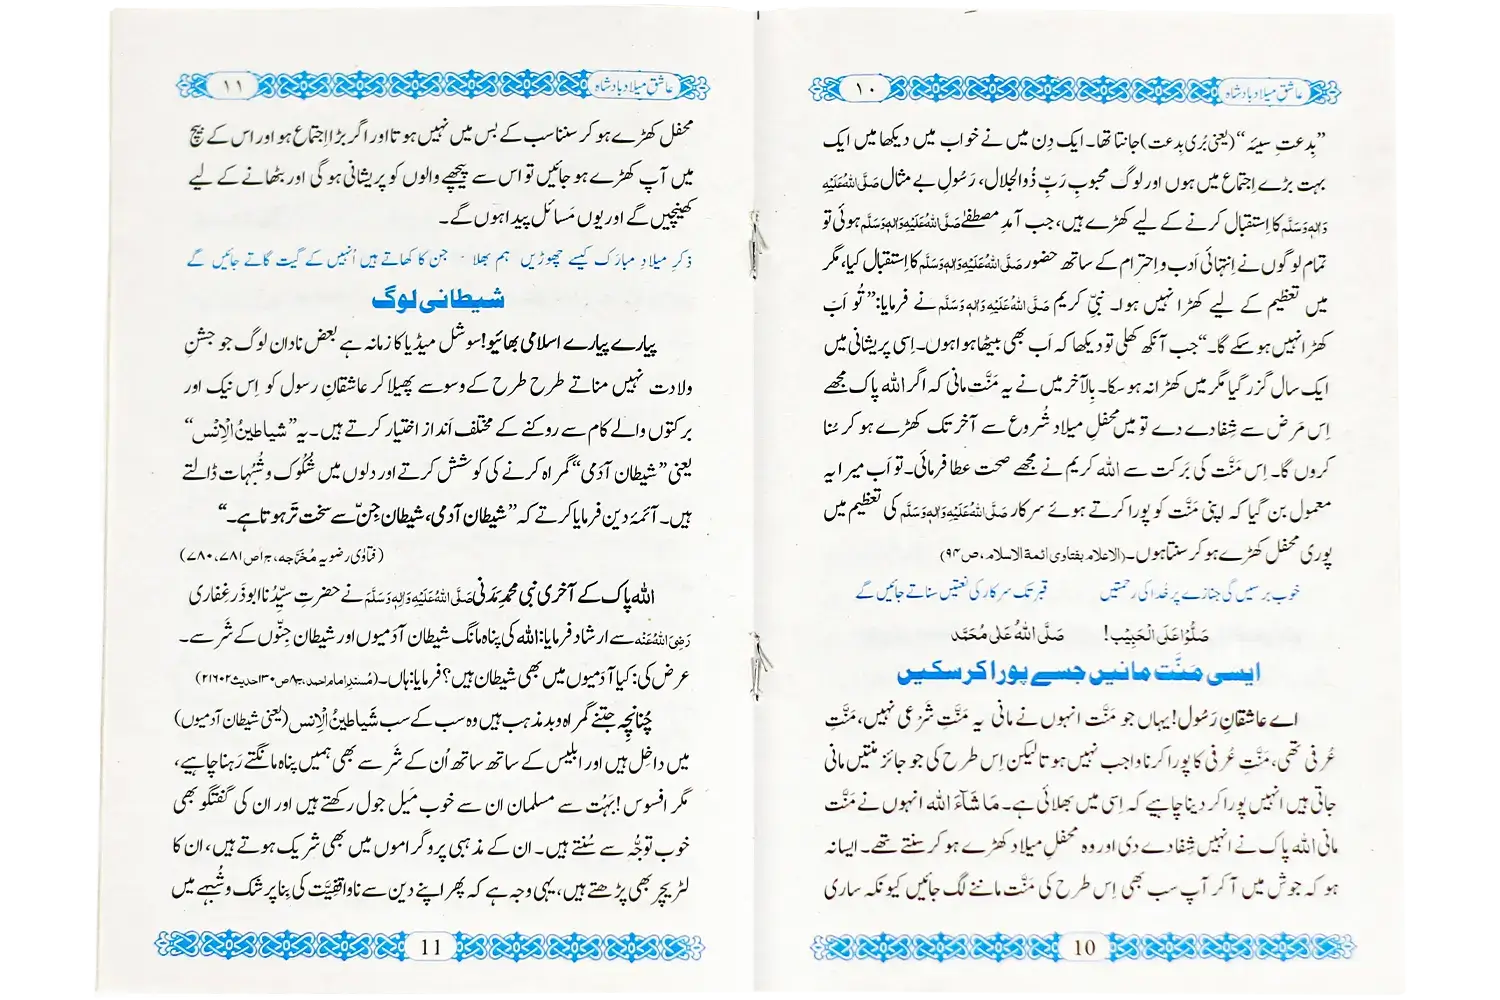 عاشقِ میلاد بادشاہ
۱۰
”بِدعتِ سیئہ“ (یعنی بُری بِدعت) جانتا تھا۔ ایک دِن میں نے خواب میں دیکھا میں ایک
بہت بڑے اِجتماع میں ہوں اور لوگ محبوبِ رَبِّ ذُوالجلال، رَسُولِ بے مثال صَلَّی اللہُ عَلَیْہِ
وَاٰلِہٖ وَسَلَّم کا اِستقبال کرنے کے لیے کھڑے ہیں، جب آمدِ مصطفےٰ صَلَّی اللہُ عَلَیْہِ وَاٰلِہٖ وَسَلَّم ہوئی تو
تمام لوگوں نے اِنتہائی اَدب و اِحترام کے ساتھ حضور صَلَّی اللہُ عَلَیْہِ وَاٰلِہٖ وَسَلَّم کا اِستقبال کیا، مگر
میں تعظیم کے لیے کھڑا نہیں ہوا۔ نبیِّ کریم صَلَّی اللہُ عَلَیْہِ وَاٰلِہٖ وَسَلَّم نے فرمایا: ”تُو اَب
کھڑا نہیں ہو سکے گا۔“ جب آنکھ کھلی تو دیکھا کہ اَب بھی بیٹھا ہوا ہوں۔ اِسی پریشانی میں
ایک سال گزر گیا مگر میں کھڑا نہ ہو سکا۔ بِالآخر میں نے یہ مَنَّت مانی کہ اگر اللہ پاک مجھے
اِس مَرض سے شِفا دے دے تو میں محفلِ میلاد شُروع سے آخر تک کھڑے ہو کر سُنا
کروں گا۔ اِس مَنَّت کی بَرکت سے اللہ کریم نے مجھے صحت عطا فرمائی۔ تو اَب میرا یہ
معمول بن گیا کہ اپنی مَنَّت کو پورا کرتے ہوئے سرکار صَلَّی اللہُ عَلَیْہِ وَاٰلِہٖ وَسَلَّم کی تعظیم میں
پوری محفل کھڑے ہو کر سنتا ہوں۔ (الاعلام بفتاوی ائمة الاسلام، ص ۹۴)
خوب برسیں گی جنازے پر خُدا کی رحمتیں قبر تک سرکار کی نعتیں سناتے جائیں گے
صَلُّوْا عَلَی الْحَبِیْب! صَلَّی اللہُ عَلٰی مُحَمَّد
ایسی مَنَّت مانیں جسے پورا کر سکیں
اے عاشقانِ رَسُول! یہاں جو مَنَّت انہوں نے مانی یہ مَنَّتِ شَرْعی نہیں، مَنَّتِ
عُرفی تھی، مَنَّتِ عُرفی کا پورا کرنا واجب نہیں ہوتا لیکن اِس طرح کی جو جائز منتیں مانی
جاتی ہیں انہیں پورا کر دینا چاہیے کہ اِسی میں بھلائی ہے۔ مَا شَآءَ اللہ انہوں نے مَنَّت
مانی اللہ پاک نے انہیں شِفا دے دی اور وہ محفلِ میلاد کھڑے ہو کر سنتے تھے۔ ایسا نہ
ہو کہ جوش میں آ کر آپ سب بھی اِس طرح کی مَنَّت ماننے لگ جائیں کیونکہ ساری
10
عاشقِ میلاد بادشاہ
۱۱
محفل کھڑے ہو کر سننا سب کے بس میں نہیں ہوتا اور اگر بڑا اِجتماع ہو اور اس کے بیچ
میں آپ کھڑے ہو جائیں تو اس سے پیچھے والوں کو پریشانی ہو گی اور بٹھانے کے لیے
کھینچیں گے اور یوں مَسائل پیدا ہوں گے۔
ذکرِ میلادِ مبارَک کیسے چھوڑیں ہم بھلا جن کا کھاتے ہیں اُنہیں کے گیت گاتے جائیں گے
شیطانی لوگ
پیارے پیارے اسلامی بھائیو! سوشل میڈیا کا زمانہ ہے بعض نادان لوگ جو جشنِ
ولادت نہیں مناتے طرح طرح کے وسوسے پھیلا کر عاشقانِ رسول کو اِس نیک اور
برکتوں والے کام سے روکنے کے مختلف اَنداز اختیار کرتے ہیں۔ یہ ”شیاطینُ الْاِنْس“
یعنی ”شیطان آدَمی“ گمراہ کرنے کی کوشش کرتے اور دلوں میں شُکُوک و شُبُہات ڈالتے
ہیں۔ آئمۂ دین فرمایا کرتے کہ ”شیطان آدمی، شیطان جِنّ سے سخت تَر ہوتا ہے۔“
(فتاویٰ رضویہ مُخَرَّجہ، ج۱ ص۷۸۰،۷۸۱)
اللہ پاک کے آخری نبی محمدِ مَدَنی صَلَّی اللہُ عَلَیْہِ وَاٰلِہٖ وَسَلَّم نے حضرتِ سیِّدُنا ابو ذَر غِفاری
رَضِیَ اللہُ عَنْہ سے ارشاد فرمایا: اللہ کی پناہ مانگ شیطان آدَمیوں اور شیطان جِنّوں کے شَر سے۔
عرض کی: کیا آدَمیوں میں بھی شیطان ہیں؟ فرمایا: ہاں۔ (مُسندِ امام احمد، ج۸ ص۱۳۰ حدیث۲۱۶۰۲)
چُنانچِہ جتنے گمراہ و بد مذہب ہیں وہ سب کے سب شَیاطینُ الْاِنس (یعنی شیطان آدمیوں)
میں داخِل ہیں اور ابلیس کے ساتھ ساتھ اُن کے شَر سے بھی ہمیں پناہ مانگتے رَہنا چاہیے،
مگر افسوس! بَہُت سے مسلمان ان سے خوب مَیل جول رکھتے ہیں اور ان کی گفتگو بھی
خوب توجُّہ سے سُنتے ہیں۔ ان کے مذہبی پروگراموں میں بھی شریک ہوتے ہیں، ان کا
لٹریچر بھی پڑھتے ہیں، یہی وجہ ہے کہ پھر اپنے دین سے ناواقفِیَّت کی بِنا پر شک و شُبہے میں
11